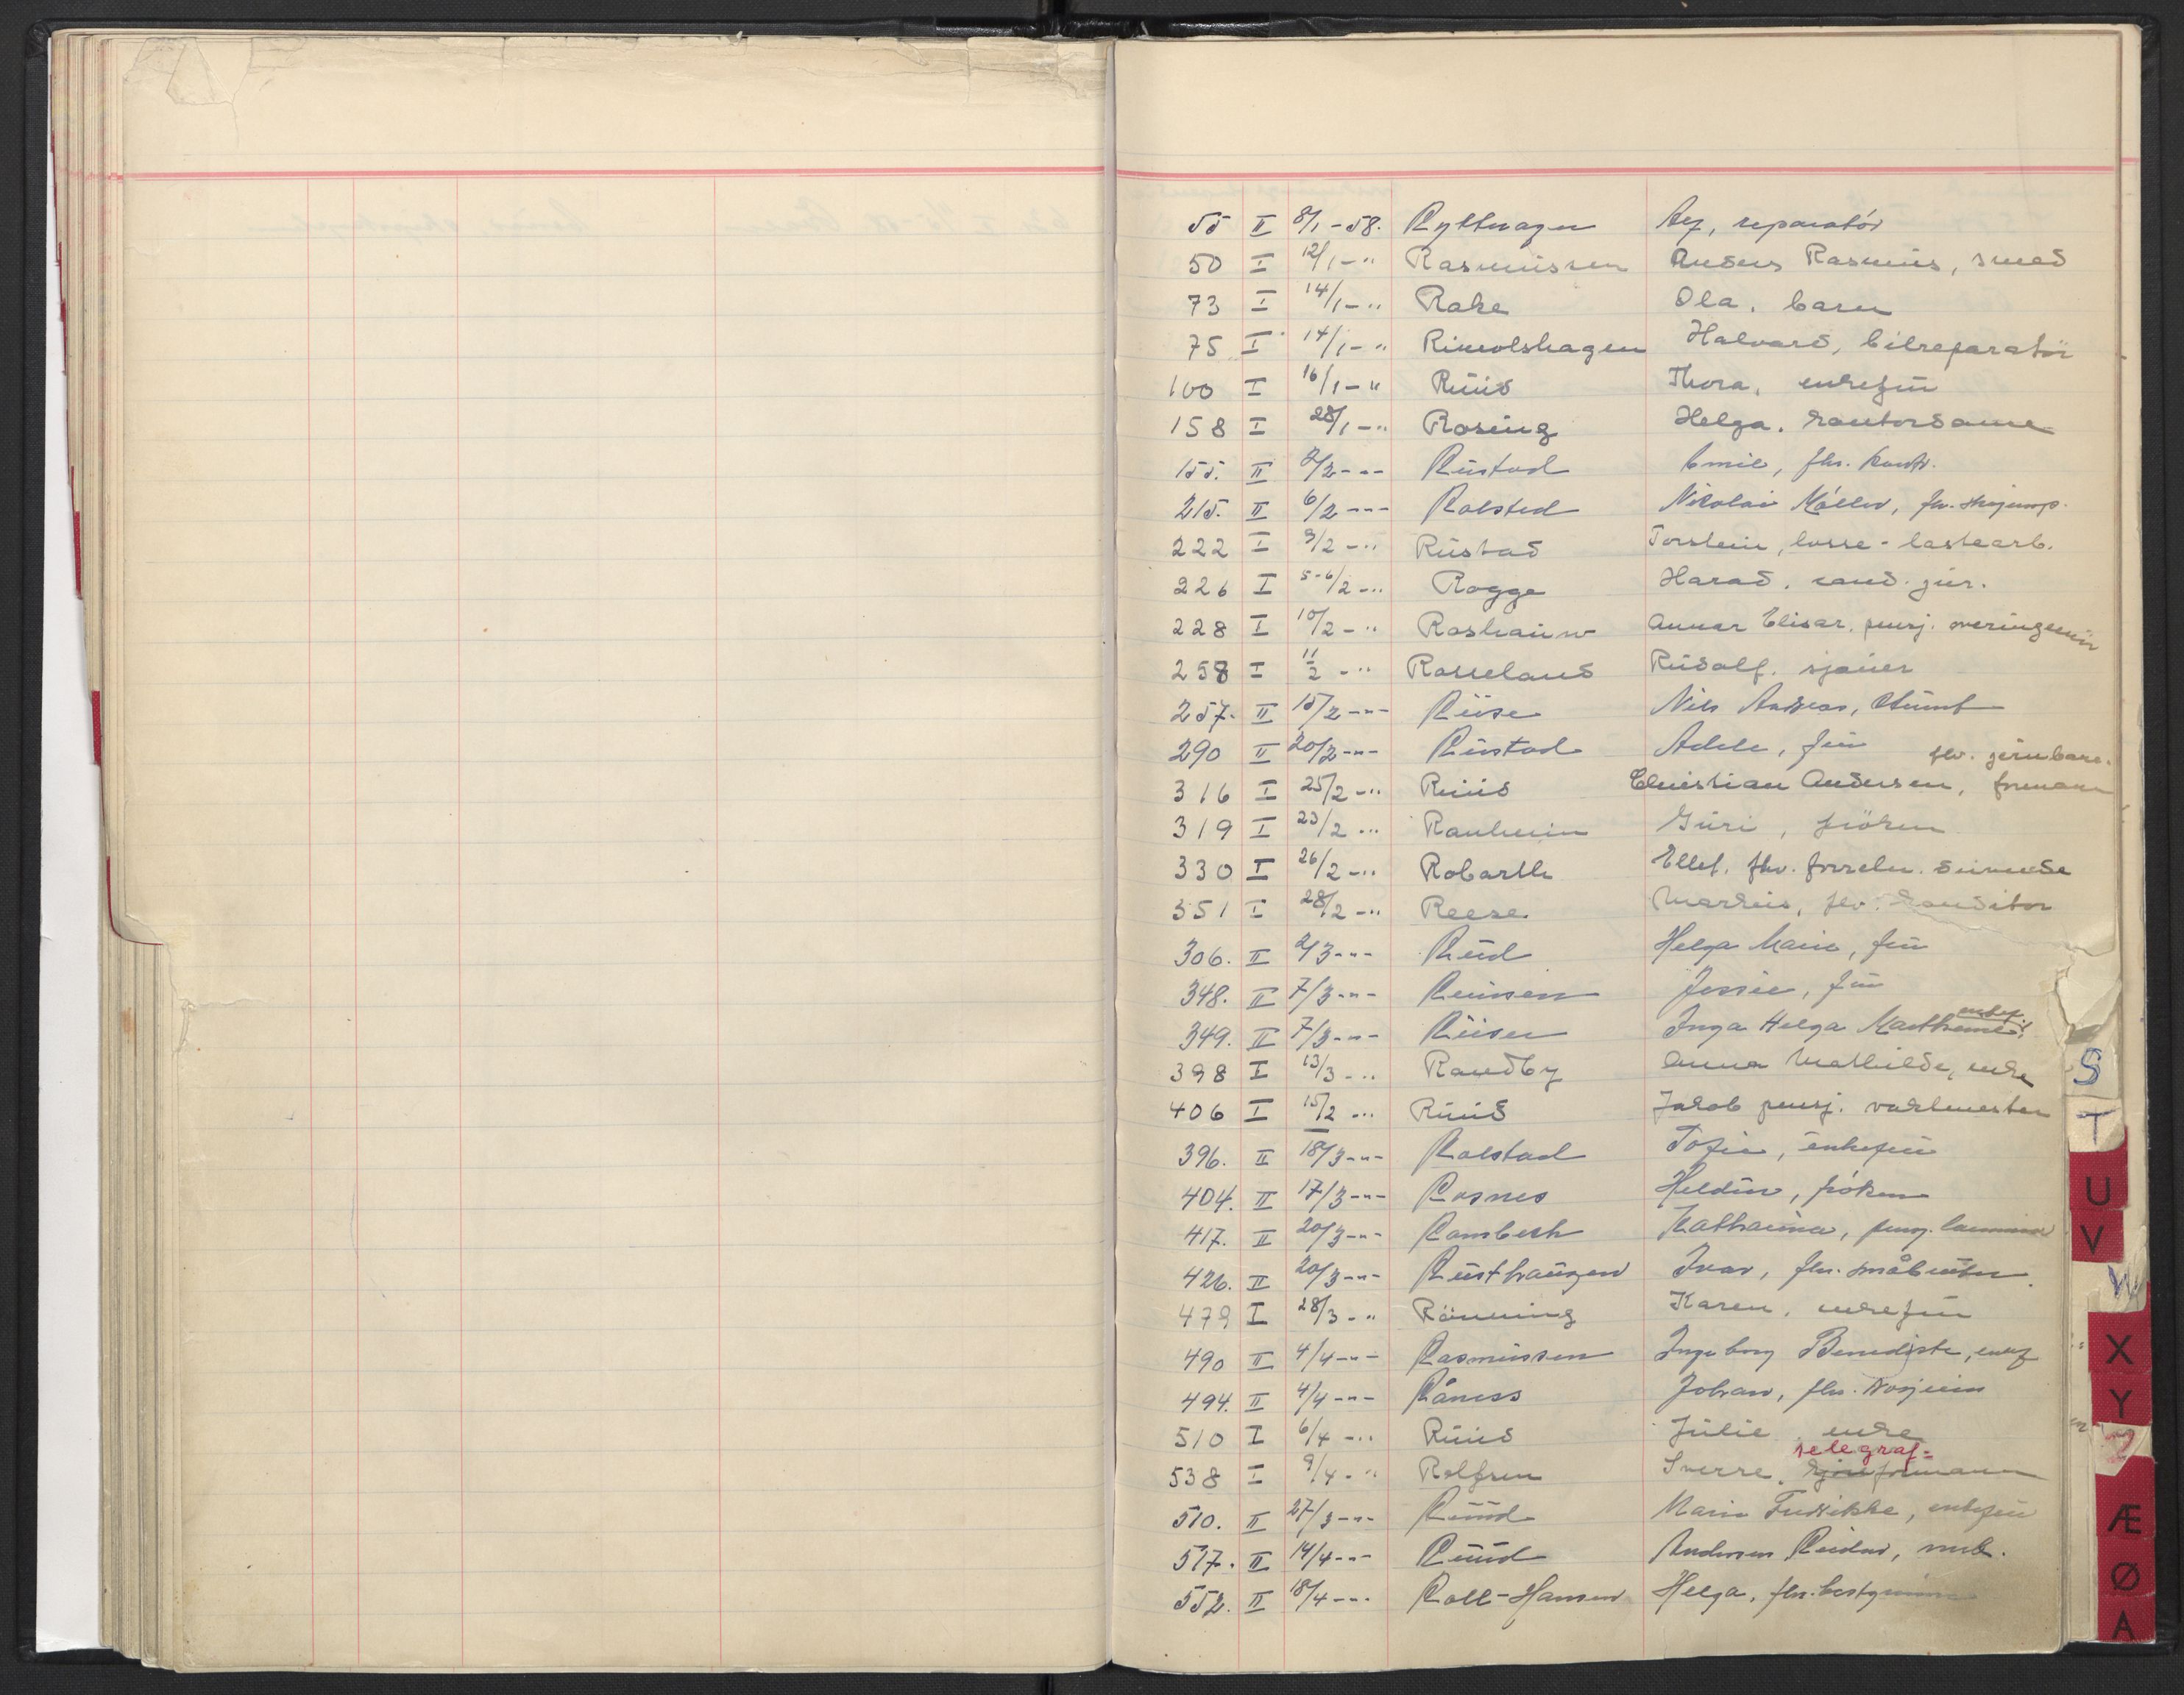 55 II 8/1 - 58. Ryttvagen Arf, reparatör
50 I 12/1 - " Rasmussen Anders Rasmus, smed
73 I 14/1 - " Rake Ola, barn
75 I 14/1 - " Rimolshagen Halvard, bilreparatör
100 I 16/1 - " Ruud Thora, enkefru
158 I 28/1 - " Rosing Helga, kontordame
155. II 2/2 - " - Rustad Emil, fhv. kontr.
215. II 6/2 - " - Rolsted Nikolai Möller, fhv.
222 I 9/2 - " Rustad Torstein, losse-lastearb.
226 I 5-6/2 - " Rogge Harad, cand. jur.
228 I 10/2 - " Roshauw Annar Elisar, pensj. overingeniör
258 I 11/2 - " Rosseland Rudolf, sjauer
257. II 15/2 - " - Ruse Nils Andreas,
290 II 20/2 - " - Rustad Adele, fru
316 I 25/2 - " Ruud Christian Andersen, fhv. jernbane-formann
319 I 23/2 - " Ranheim Guri, fröken
330 I 26/2 - " Robarth Ellef, fhv.
351 I 28/2 - " Reese Markus, fhv. konditor
306. II 2/3 - " - Rud Helga Marie, fru
348. II 7/3 - " - Reinsen Jessie, fru
349. II 7/3 - " - Riiser Inga Helga Mathine, enkef.
398 I 13/3 - " Randby Anna Mathilde, enke
406 I 15/2 - " Ruud Jakob pensj. vaktmester
396. II 18/3 - " - Rolstad Tofie, enkefru
404. II 17/3 - " - Rosnes Heldur, fröken
417. II 20/3 - " - Rambech Katharina, pensj. lærerinne
426. II 20/3 - " - Rusthaugen Ivar, fhv. småbruker
479 I 28/3 - " Rönning Karen, enkefru
490 II 4/4 - " - Rasmussen Ingeborg Benedikte, enkef
494. II 4/4 - " - Råness Johan, fhv.
510 I 6/4 - " Ruud Julie, enke
538 I 9/4 - " Rolfsen Sverre, telegraf= formann
510. II 27/3 - " - Ruud Marie Fredrikke, enkefru
517. II 14/4 - " - Ruud Andersen Reidar, mrb.
552. II 18/4 - " - Roll-Hansen Helga, fhv. bestyrerinne
S
T
U
V
W
X
Y
Æ
Ø
A